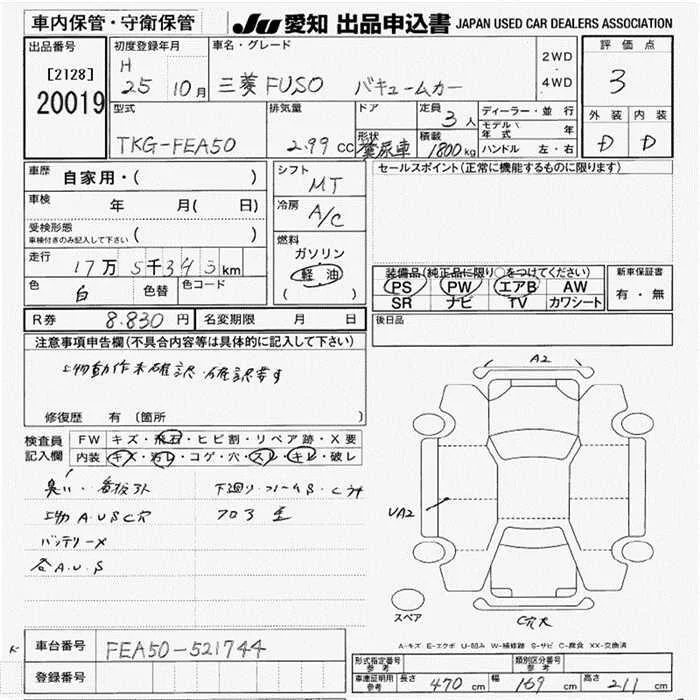 車内保管・守衛保管 JU 愛知 出品申込書 JAPAN USED CAR DEALERS ASSOCIATION
出品番号 初度登録年月 車名・グレード 評価点
[2128] H 2WD
20019 25 10月 三菱 FUSO バキュームカー 4WD 3
型式 排気量 ドア 定員 3人 ディーラー・並行 外装 内装
TKG-FEA50 2.99cc 形状 糞尿車 積載 1800kg モデル 年式 年 D D
ハンドル 左・右
車歴 自家用・( ) シフト MT セールスポイント(正常に機能するものに限ります)
車検 年 月( 日) 冷房 A/C
受検形態
車検付きのみ記入して下さい ( ) 燃料
走行 17万5千343km ガソリン
軽油 装備品(純正品に限り○をつけてください) 新車保証書
色 白 色替 色コード ( ) PS PW エアB AW 有・無
SR ナビ TV カワシート
R券 8.830円 名変期限 月 日 後日品
注意事項申告欄(不具合内容等は具体的に記入して下さい)
上物動作未確認 A2
修復歴 有 (箇所 )
検査員 FW キズ・飛石・ヒビ割・リペア跡・X要
記入欄 内装 キズ・汚レ・コゲ・穴・スレ・キレ・破レ
臭い 下廻り・フレームS・C
上物 A・U・S・C穴 UA2
バッテリーX
A・U・S
スペア
C穴大
A-キズ E-エクボ U-凹み W-補修跡 S-サビ C-腐食 XX-交換済
車台番号 FEA50-521744
登録番号 形式指定番号 参考 類別区分番号 参考
車庫証明用 参考 長さ 470cm 幅 169cm 高さ 211cm